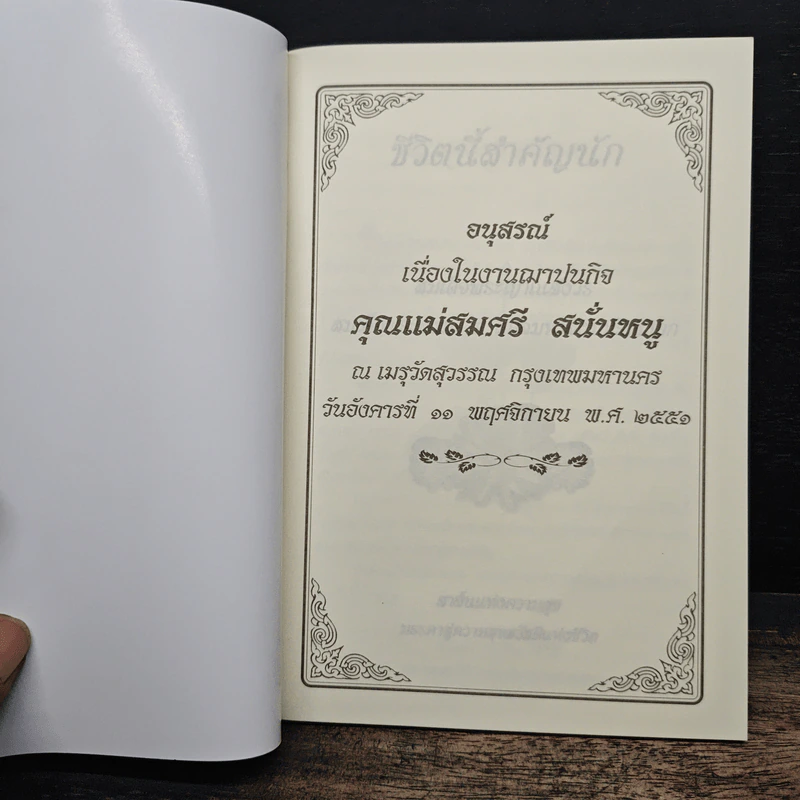 ชีวิตนี้สำคัญนัก
อนุสรณ์
เนื่องในงานฌาปนกิจ
คุณแม่สมศรี สนั่นหนู
ณ เมรุวัดสุวรรณ กรุงเทพมหานคร
วันอังคารที่ ๑๑ พฤศจิกายน พ.ศ. ๒๕๕๑